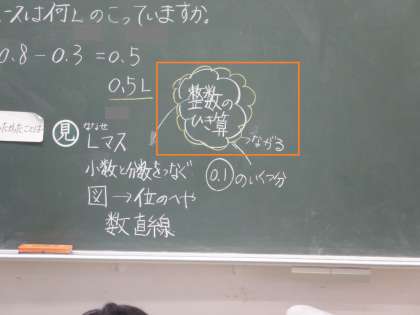 ースは何Lのこっていますか。
0.8－0.3＝0.5
0.5L
整数の
ひき算
つながる
見
Lマス
小数と分数をつなぐ
0.1のいくつ分
図→位のへや
数直線